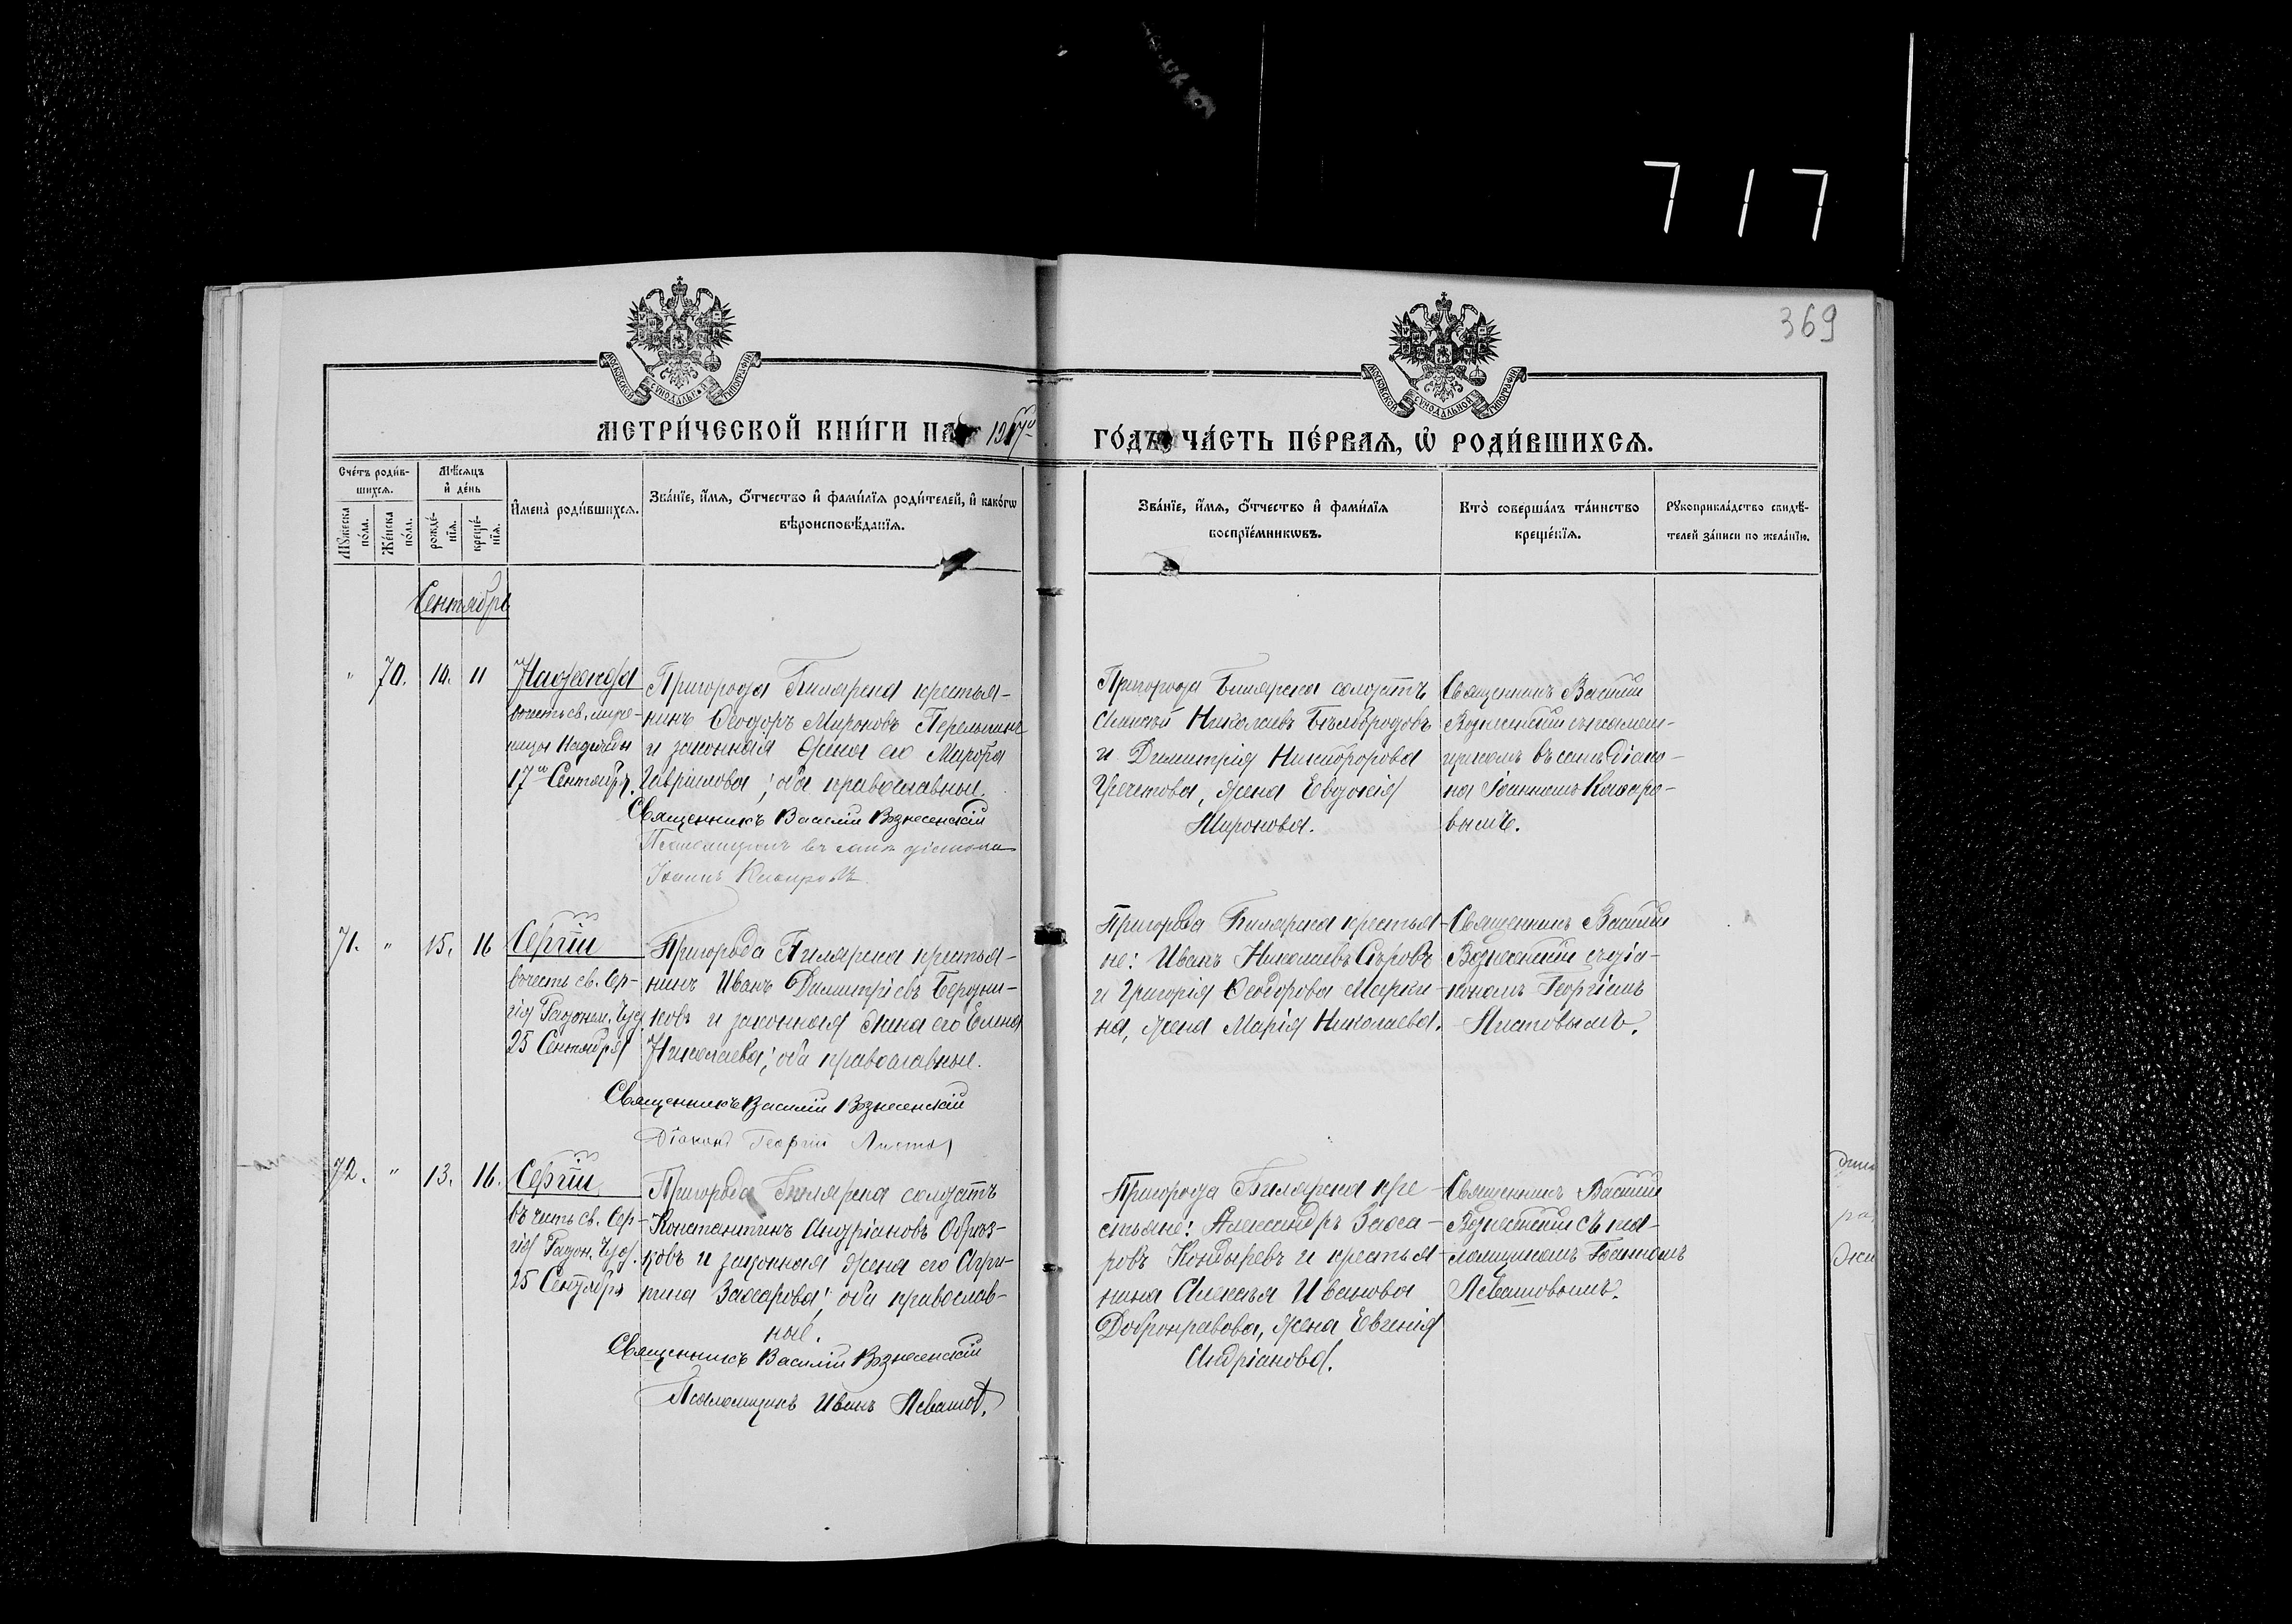 7 1 7
369
МОСКОВСКОЙ СУНОДАЛЬНОЙ ТИПОГРАФІИ
МОСКОВСКОЙ СУНОДАЛЬНОЙ ТИПОГРАФІИ
МЕТРИ́ЧЕСКОЙ КНИ́ГИ НА 1917й
ГО́ДЪ ЧА́СТЬ ПЕ́РВАѦ, Ѡ҆ РОДИ́ВШИХСѦ.
Сче́тъ роди́в-
шихсѧ.
Мѣ́сѧцъ
и҆ де́нь
Мꙋ́жеска
по́ла.
Же́нска
по́ла.
рожде́-
нїѧ.
креще́-
нїѧ.
И҆мена̀ роди́вшихсѧ.
Зва́нїе, и҆́мѧ, ѻ҆́тчество и҆ фами́лїѧ роди́телей, и҆ како́гѡ
вѣроисповѣ́данїѧ.
Зва́нїе, и҆́мѧ, ѻ҆́тчество и҆ фами́лїѧ
воспрїе́мникѡвъ.
Кто̀ соверша́лъ та́инство
креще́нїѧ.
Рꙋкоприкла́дство свидѣ́-
телей за́писи по жела́нїю.
Сентябрь
" 70. 10. 11
Надежда
въ честь св. муче-
ницы Надежды
17го Сентября.
Пригорода Билярска крестья-
нинъ Ѳеодоръ Мироновъ
и законная жена его
Гавріилова; оба православные.
Священникъ Василій Вознесенскій
Псаломщикъ въ санѣ діакона
Іоаннъ
Пригорода Билярска солдатъ
Алексѣй Николаевъ Бѣлобородовъ
и Димитрія Никифорова
жена Евдокія
Миронова.
Священникъ Василій
Вознесенскій съ псалом-
щикомъ въ санѣ діако-
на Іоанномъ
71. " 15. 16
Сергій
въ честь св. Сер-
гія Радонеж. Чуд.
25 Сентября
Пригорода Билярска крестья-
нинъ Иванъ Димитріевъ Бердни-
ковъ и законная жена его Елена
Николаева; оба православные.
Священникъ Василій Вознесенскій
Діаконъ Георгій Листовъ
Пригорода Билярска крестья-
не: Иванъ Николаевъ Сѣровъ
и Григорія Ѳеодорова Марки-
на, жена Марія Николаева.
Священникъ Василій
Вознесенскій съ діа-
кономъ Георгіемъ
Листовымъ.
72. " 13. 16.
Сергій
въ честь св. Сер-
гія Радон. Чуд.
25 Сентября
Пригорода Билярска солдатъ
Константинъ Андріановъ Образ-
ковъ и законная жена его Агри-
пина Захарова; оба православ-
ные.
Священникъ Василій Вознесенскій
Псаломщикъ Иванъ Левашовъ.
Пригорода Билярска кре-
стьяне: Александръ Заха-
ровъ Кондыревъ и крестья-
нина Алексѣя Иванова
Добронравова, жена Евгенія
Андріанова.
Священникъ Василій
Вознесенскій съ пса-
ломщикомъ Іоанномъ
Левашовымъ.